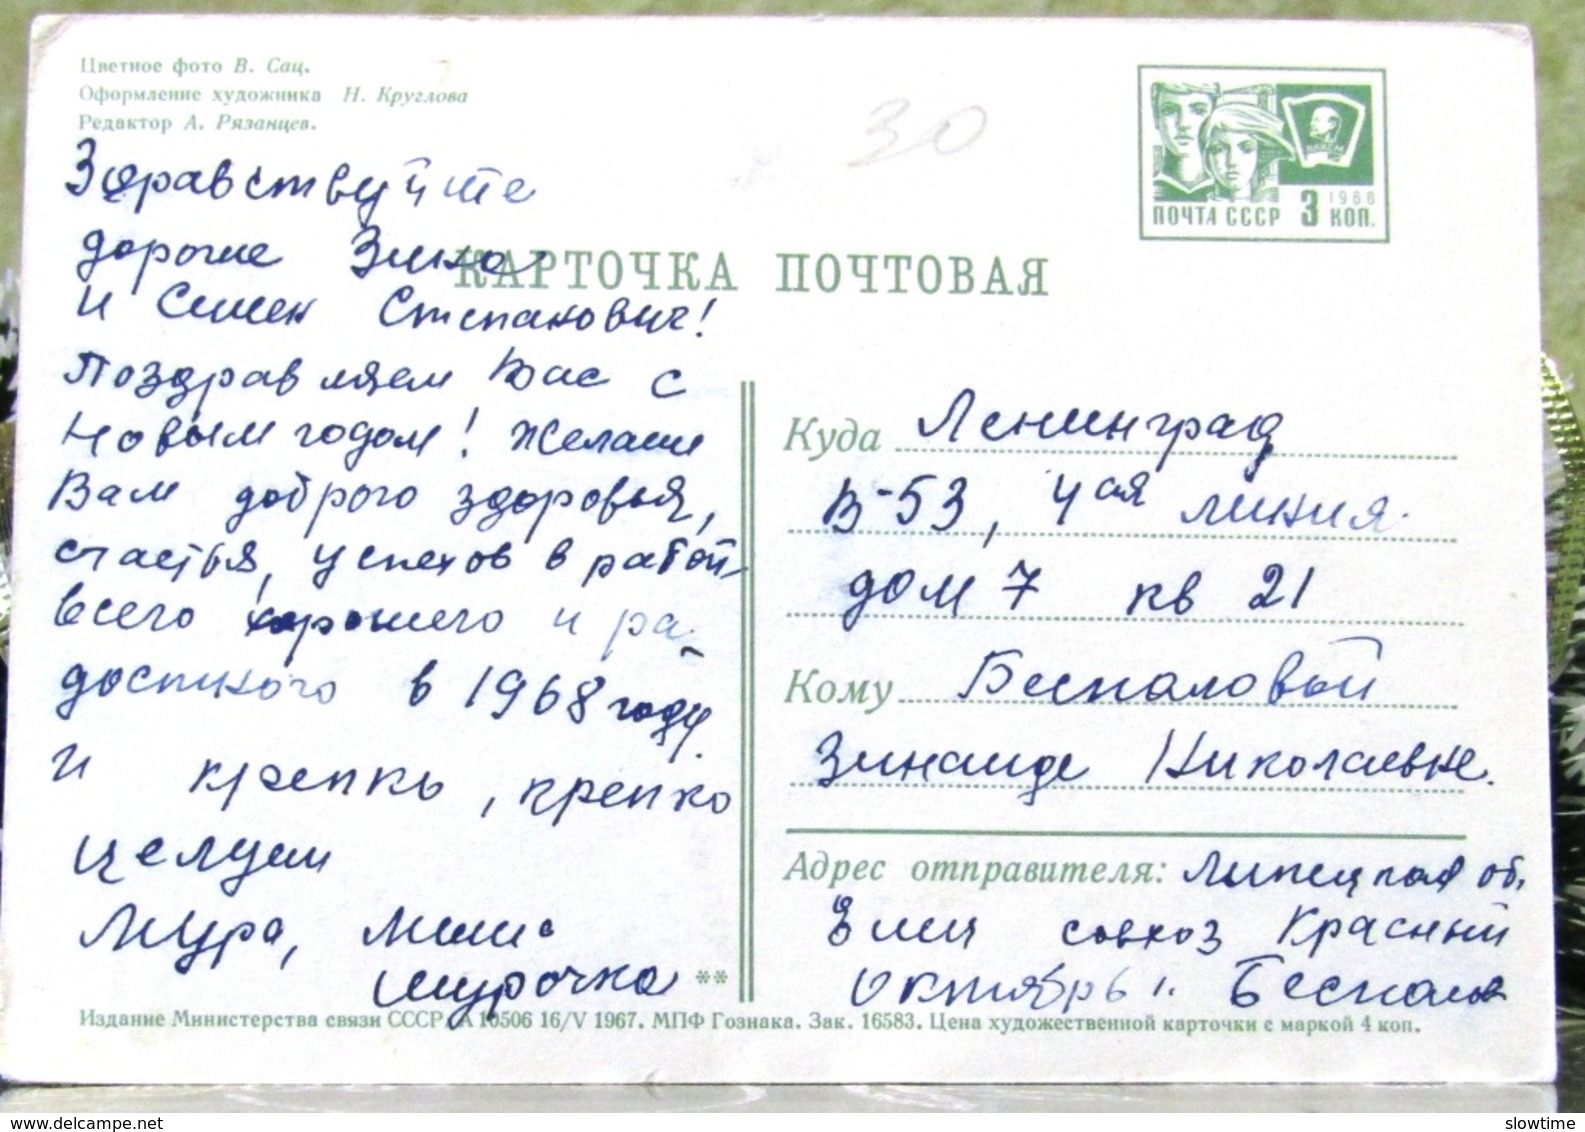 Цветное фото В. Сац.
Оформление художника Н. Круглова
Редактор А. Рязанцев.
30
1966
ПОЧТА СССР 3 КОП.
КАРТОЧКА ПОЧТОВАЯ
Здравствуйте
дорогие Зина
и Семен Степанович!
Поздравляем Вас с
Новым годом! Желаем
Вам доброго здоровья,
счастья, успехов в работе
всего хорошего и ра
достного в 1968 году.
И крепко, крепко
целуем
Мура, Миша
Шурочка
Куда Ленинград
В-53, 4ая линия
дом 7 кв 21
Кому Беспаловой
Зинаиде Николаевне.
Адрес отправителя: Липецкая об.
совхоз Красный
Октябрь
**
Издание Министерства связи СССР. А 10506 16/V 1967. МПФ Гознака. Зак. 16583. Цена художественной карточки с маркой 4 коп.
delcampe.net
slowtime